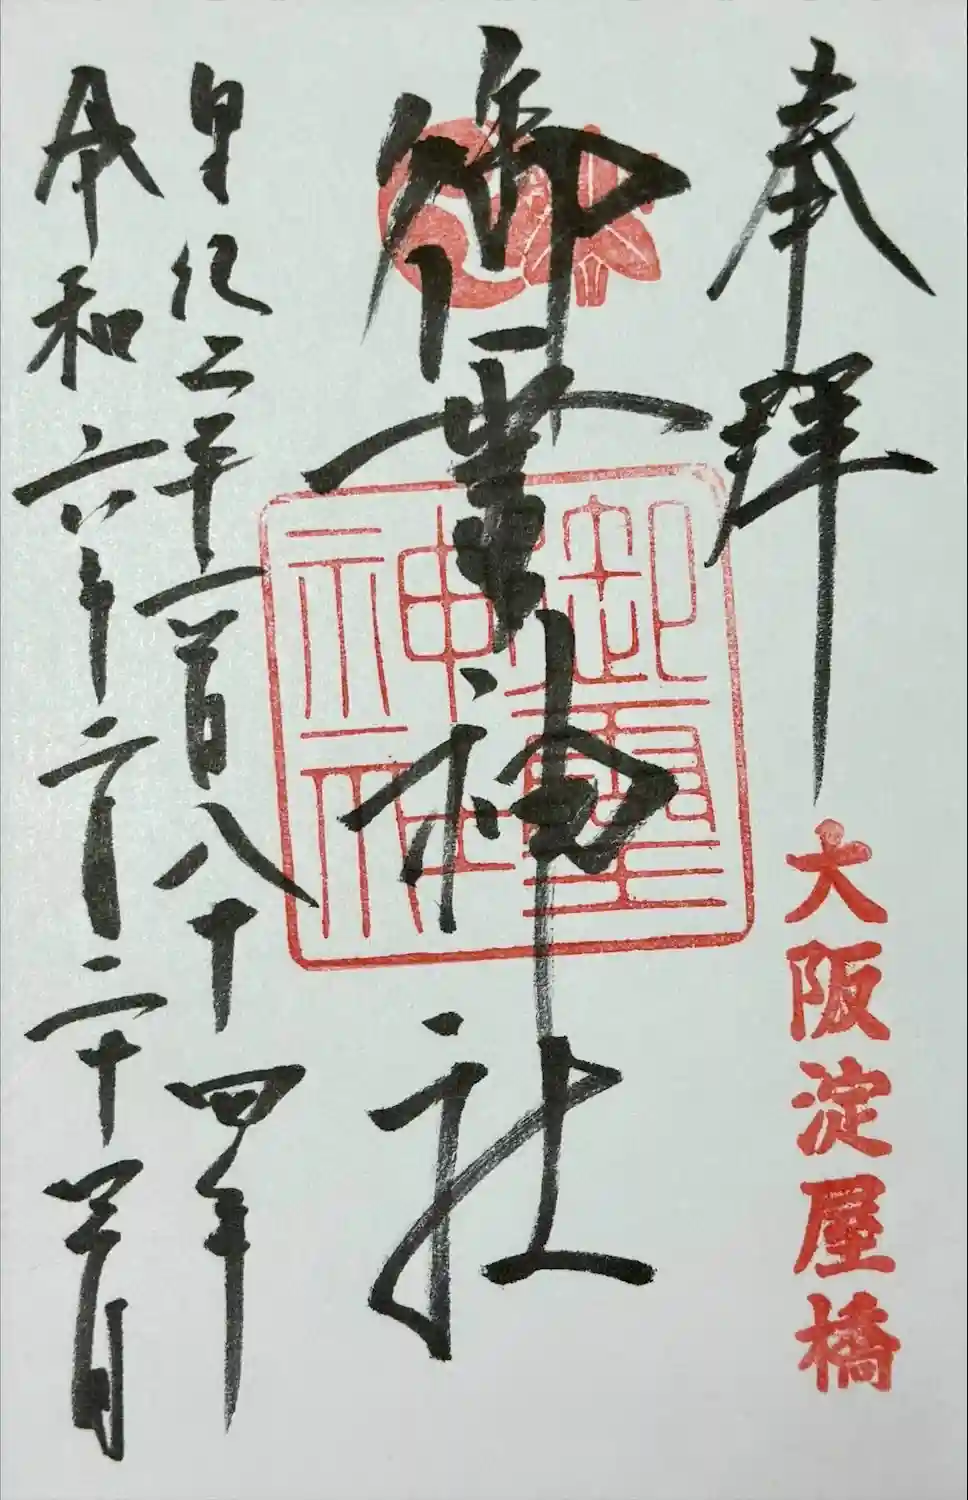 奉拝
大阪淀屋橋
御霊神社
御霊
神社
皇紀二千六百八十四年
令和六年二月二十三日